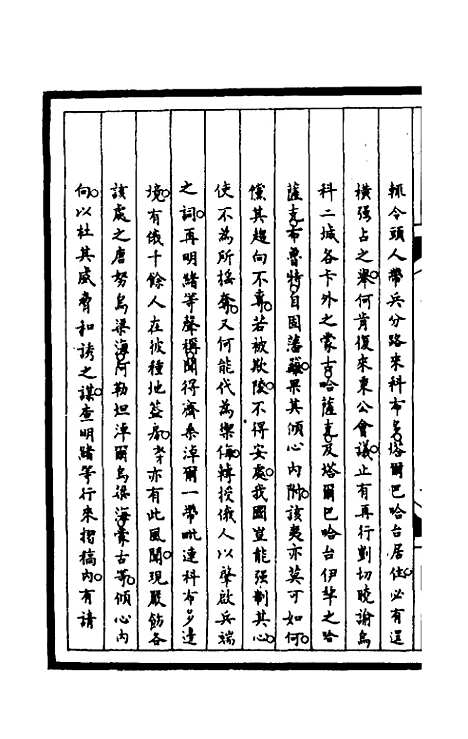 輒令頭人帶兵分路來科布多塔爾巴哈台居住必有逞
橫强占之舉何肯復來東公會議止有再行剴切曉諭烏
科二城各卡外之蒙古哈薩克及塔爾巴哈台伊犂之哈
薩克布魯特自固藩籬果其傾心內附該夷亦莫可如何
儻其趨向不專若被欺陵不得安處我國豈能强制其心
使不為所搖奪又何能代為禦侮轉授俄人以肇啟兵端
之詞再明緒等聲稱聞得齋桑淖爾一帶毗連科布多邊
境有俄十餘人在彼種地蓋房等亦有此風聞現嚴飭各
該處之唐努烏梁海阿勒坦淖爾烏梁海蒙古等傾心內
向以杜其威脅和誘之謀查明緒等行來摺稿內有請